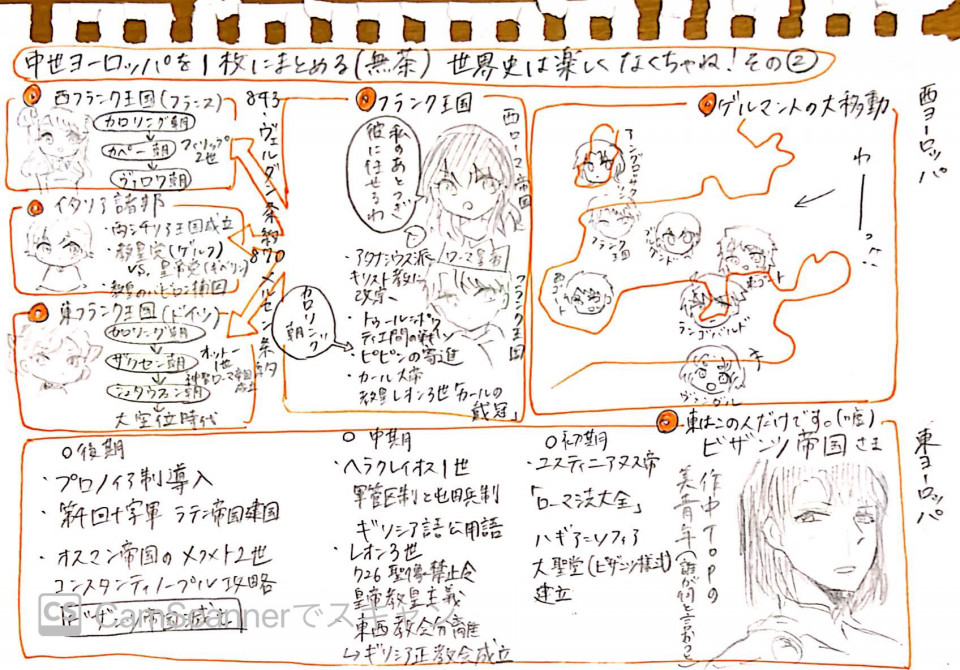 中世ヨーロッパを1枚にまとめる(無茶) 世界史は楽しくなくちゃね!その②
西ヨーロッパ
ゲルマン人の大移動
わーっ!!
アングロサクソン
フランク王国
ブルグント
西ゴート
東ゴート
ランゴバルド
ヴァンダル
フランク王国
西ローマ帝国
私のあとつぎ
彼に任せるわ
ローマ皇帝
フランク王国
・アタナシウス派
キリスト教に
改宗へ
・トゥールポワ
ティエ間の戦い
・ピピンの寄進
・カール大帝
教皇レオン3世「カールの
戴冠」
カロリング
朝
843・ヴェルダン条約
870 メルセン条約
西フランク王国(フランス)
カロリング朝
カペー朝
フィリップ
2世
ヴァロワ朝
イタリア諸邦
・両シチリア王国成立
・教皇党(ゲルフ)
VS. 皇帝党(ギベリン)
・教皇のバビロン捕囚
東フランク王国(ドイツ)
カロリング朝
ザクセン朝
オットー
1世
神聖ローマ帝国
成立
シュタウフェン朝
大空位時代
東ヨーロッパ
東はこの人だけです。(嘘)
ビザンツ帝国さま
作中TOPの
美青年(誰が何と言おうと)
○初期
・ユスティニアヌス帝
「ローマ法大全」
ハギア=ソフィア
大聖堂(ビザンツ様式)
建立
○中期
・ヘラクレイオス1世
軍管区制と屯田兵制
ギリシア語公用語
・レオン3世
726 聖像禁止令
皇帝教皇主義
東西教会分離
↳ギリシア正教会成立
○後期
・プロノイア制導入
・第4回十字軍 ラテン帝国建国
・オスマン帝国のメフメト2世
コンスタンティノープル攻略
ビザンツ帝国滅亡
CS CamScannerでスキャン